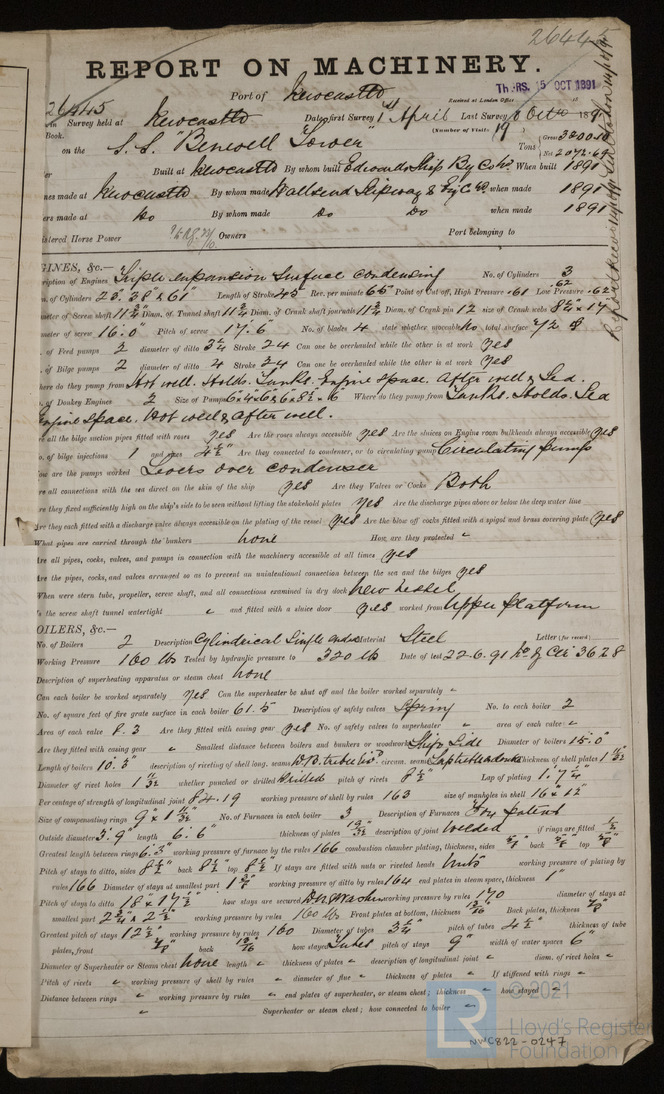 26445
REPORT ON MACHINERY.
Port of Newcastle
Received at London Office THURS. 15 OCT 1891
26445
in Survey held at Newcastle Date, first Survey 1st April Last Survey 6 Octr 1891
Book. (Number of Visits 19)
on the S.S. "Benwell Tower" Tons
Built at Newcastle By whom built Edwards Ship Bg Co Ld When built 1891
nes made at Newcastle By whom made Wallsend Slipway & Eng Co Ld when made 1891
ers made at Do By whom made Do Do when made 1891
istered Horse Power Owners Port belonging to
GINES, &c.—
ription of Engines Triple expansion Surface condensing No. of Cylinders 3
. of Cylinders 23" 38" & 61" Length of Stroke 45 Rev. per minute 65 Point of Cut off, High Pressure .61 Low Pressure .62
meter of Screw shaft 11 3/4 Diam. of Tunnel shaft Diam. of Crank shaft journals Diam. of Crank pin 12 size of Crank webs
meter of screw 16.0" Pitch of screw 17.6" No. of blades 4 state whether moveable No total surface 72
. of Feed pumps 2 diameter of ditto 3 1/2 Stroke 24 Can one be overhauled while the other is at work Yes
. of Bilge pumps 2 diameter of ditto 4 Stroke 24 Can one be overhauled while the other is at work Yes
here do they pump from Hot well. Holds. Tanks. Engine Space. After well & Sea.
. of Donkey Engines 2 Size of Pumps Where do they pump from Tanks. Holds. Sea
Engine Space. Hot well & after well.
re all the bilge suction pipes fitted with roses yes Are the roses always accessible yes Are the sluices on Engine room bulkheads always accessible yes
o. of bilge injections 1 and sizes 4 1/2" Are they connected to condenser, or to circulating pump Circulating pump
How are the pumps worked Levers over condenser
re all connections with the sea direct on the skin of the ship yes Are they Valves or Cocks Both
re they fixed sufficiently high on the ship's side to be seen without lifting the stokehold plates yes Are the discharge pipes above or below the deep water line
Are they each fitted with a discharge valve always accessible on the plating of the vessel yes Are the blow off cocks fitted with a spigot and brass covering plate yes
What pipes are carried through the bunkers none How are they protected "
Are all pipes, cocks, valves, and pumps in connection with the machinery accessible at all times yes
Are the pipes, cocks, and valves arranged so as to prevent an unintentional connection between the sea and the bilges yes
When were stern tube, propeller, screw shaft, and all connections examined in dry dock New Vessel
Is the screw shaft tunnel watertight " and fitted with a sluice door yes worked from Upper platform
OILERS, &c.—
No. of Boilers 2 Description Cylindrical Single ended Material Steel Letter (for record)
Working Pressure 160 lbs Tested by hydraulic pressure to 320 lbs Date of test 22.6.91 No of Cer 3628
Description of superheating apparatus or steam chest none
Can each boiler be worked separately Yes Can the superheater be shut off and the boiler worked separately "
No. of square feet of fire grate surface in each boiler 61.5 Description of safety valves Spring No. to each boiler 2
Area of each valve 8.3 Are they fitted with easing gear yes No. of safety valves to superheater " area of each valve "
Are they fitted with easing gear " Smallest distance between boilers and bunkers or woodwork Ships Side Diameter of boilers 15.0"
Length of boilers 10.3" description of riveting of shell long. seams circum. seams Thickness of shell plates
Diameter of rivet holes whether punched or drilled drilled pitch of rivets 8 1/2" Lap of plating 1.7 1/4"
Per centage of strength of longitudinal joint 84.19 working pressure of shell by rules 163 size of manholes in shell 16" x 12"
Size of compensating rings No. of Furnaces in each boiler 3 Description of Furnaces Fox patent
Outside diameter 3.9" length 6.6" thickness of plates description of joint Welded if rings are fitted
Greatest length between rings 6.3" working pressure of furnace by the rules 166 combustion chamber plating, thickness, sides back top
Pitch of stays to ditto, sides back top If stays are fitted with nuts or riveted heads nuts working pressure of plating by
rules 166 Diameter of stays at smallest part working pressure of ditto by rules 164 end plates in steam space, thickness 1"
Pitch of stays to ditto 18" x 17 1/2" how stays are secured working pressure by rules 170 diameter of stays at
smallest part working pressure by rules 160 lbs Front plates at bottom, thickness Back plates, thickness
Greatest pitch of stays 12 1/2" working pressure by rules 160 Diameter of tubes 3 1/4" pitch of tubes 4 1/2" thickness of tube
plates, front back how stayed Tubes pitch of stays 9" width of water spaces 6"
Diameter of Superheater or Steam chest none length " thickness of plates " description of longitudinal joint " diam. of rivet holes "
Pitch of rivets " working pressure of shell by rules " diameter of flue " thickness of plates " If stiffened with rings "
Distance between rings " working pressure by rules " end plates of superheater, or steam chest; thickness " how stayed
" Superheater or steam chest; how connected to boiler "
© 2021
Lloyd's Register
Foundation
NWC822-0247